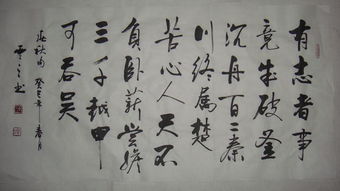 有志者事
竟成破釜
沉舟百二秦
川终属楚
苦心人天不
负卧薪尝胆
三千越甲
可吞吴
癸巳年春月